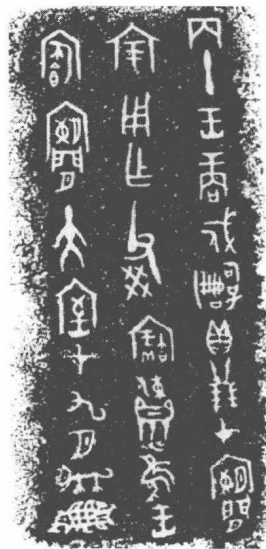 丙午王商戍嗣子貝廿朋才闌
宗用乍父癸寶䵼隹王
闌大室才九月犬魚